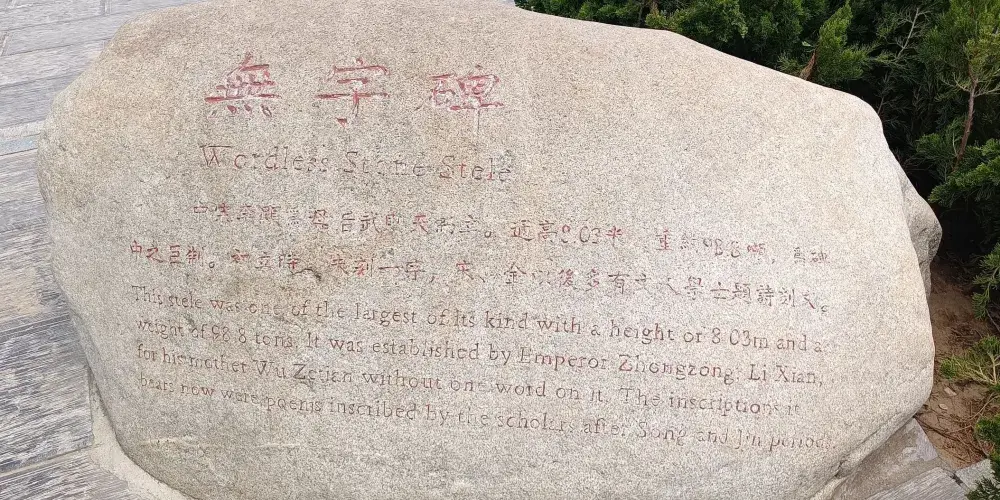 無字碑
Wordless Stone Stele
中宗李顯為母后武則天所立。通高8.03米 重約98.8噸，為碑
中之巨制。初立時，未刻一字，宋、金以後多有文人學士題詩刻文。
This stele was one of the largest of its kind with a height or 8.03m and a
weight of 98.8 tons. It was established by Emperor Zhongzong: Li Xian,
for his mother Wu Zetian without one word on it. The inscriptions it
bears now were poems inscribed by the scholars after Song and Jin periods